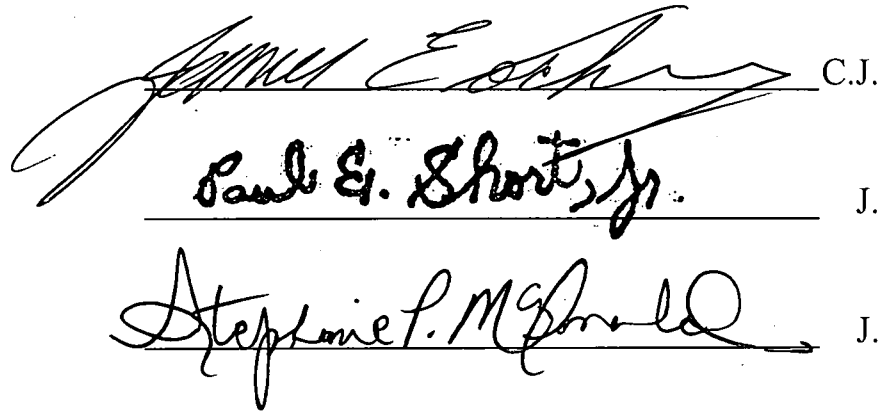 James E. Lockemy C.J.
Paul E. Short, Jr. J.
Stephanie P. McDonald J.